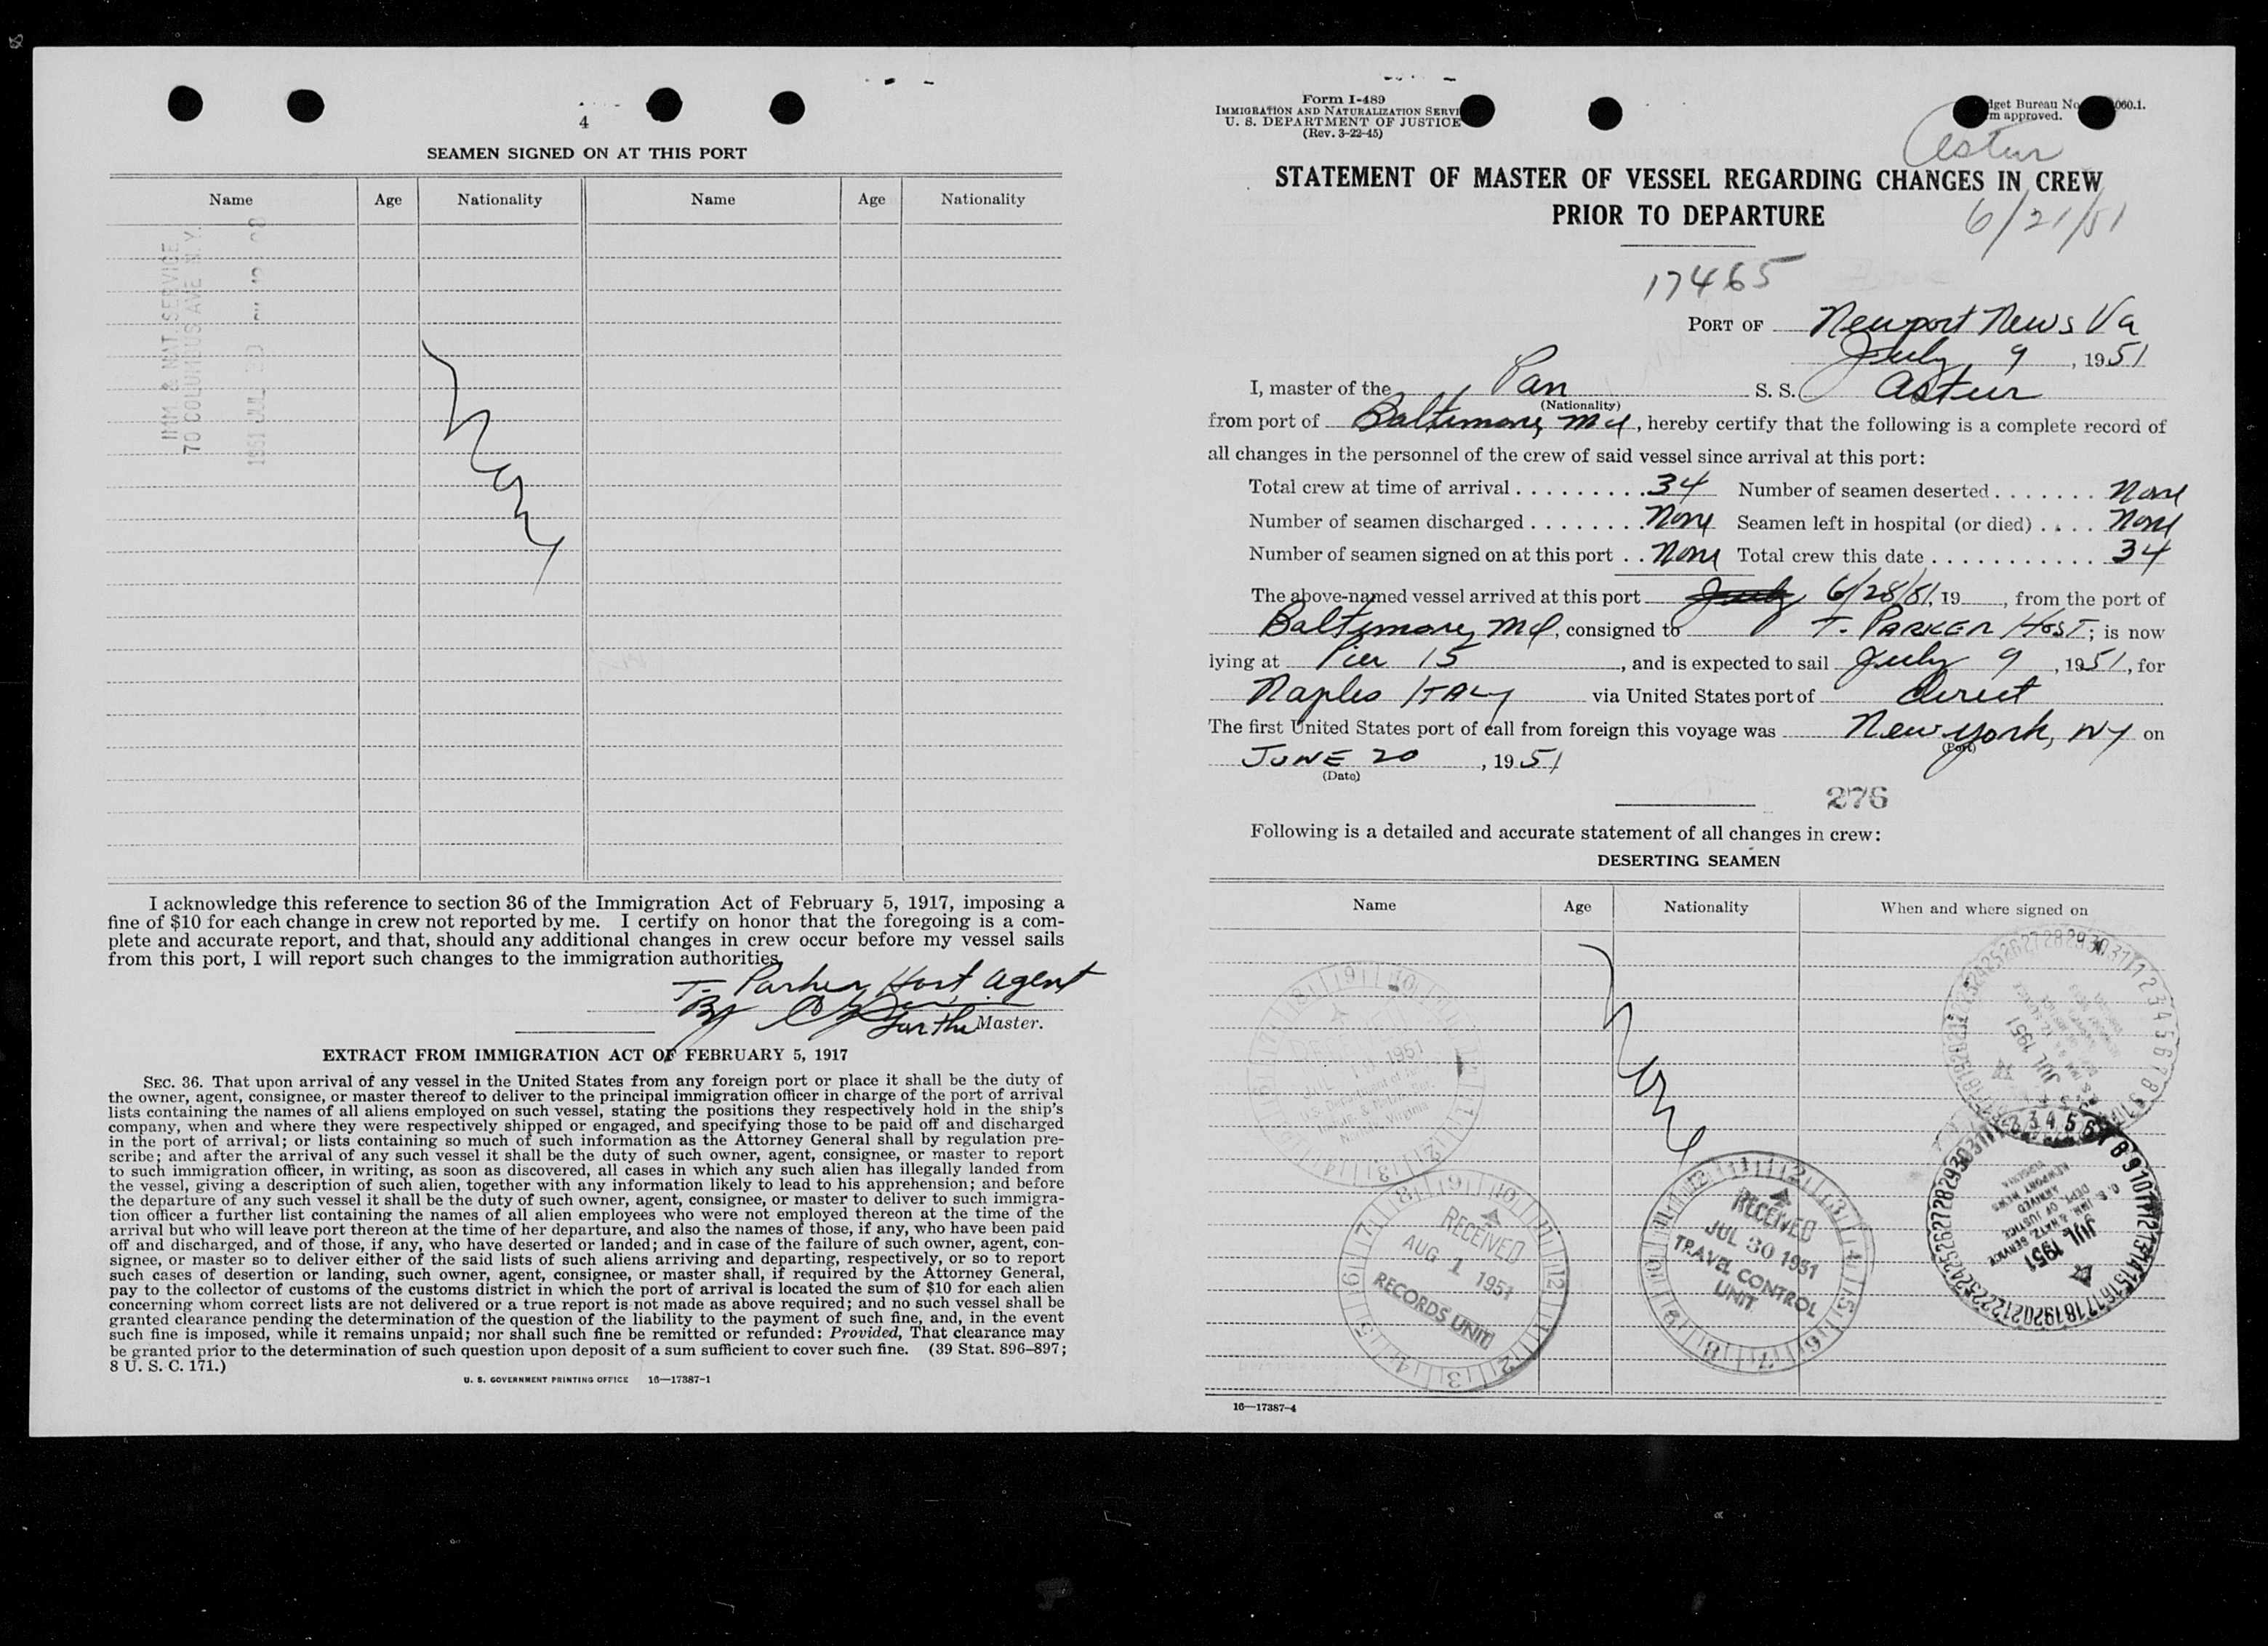 4
SEAMEN SIGNED ON AT THIS PORT
Name Age Nationality Name Age Nationality
IMM. & NAT. SERVICE
70 COLUMBUS AVE N.Y.
1951 JUL 30
None
I acknowledge this reference to section 36 of the Immigration Act of February 5, 1917, imposing a
fine of $10 for each change in crew not reported by me. I certify on honor that the foregoing is a com-
plete and accurate report, and that, should any additional changes in crew occur before my vessel sails
from this port, I will report such changes to the immigration authorities.
T. Parker Host, Agent
By
Master.
EXTRACT FROM IMMIGRATION ACT OF FEBRUARY 5, 1917
SEC. 36. That upon arrival of any vessel in the United States from any foreign port or place it shall be the duty of
the owner, agent, consignee, or master thereof to deliver to the principal immigration officer in charge of the port of arrival
lists containing the names of all aliens employed on such vessel, stating the positions they respectively hold in the ship's
company, when and where they were respectively shipped or engaged, and specifying those to be paid off and discharged
in the port of arrival; or lists containing so much of such information as the Attorney General shall by regulation pre-
scribe; and after the arrival of any such vessel it shall be the duty of such owner, agent, consignee, or master to report
to such immigration officer, in writing, as soon as discovered, all cases in which any such alien has illegally landed from
the vessel, giving a description of such alien, together with any information likely to lead to his apprehension; and before
the departure of any such vessel it shall be the duty of such owner, agent, consignee, or master to deliver to such immigra-
tion officer a further list containing the names of all alien employees who were not employed thereon at the time of the
arrival but who will leave port thereon at the time of her departure, and also the names of those, if any, who have been paid
off and discharged, and of those, if any, who have deserted or landed; and in case of the failure of such owner, agent, con-
signee, or master so to deliver either of the said lists of such aliens arriving and departing, respectively, or so to report
such cases of desertion or landing, such owner, agent, consignee, or master shall, if required by the Attorney General,
pay to the collector of customs of the customs district in which the port of arrival is located the sum of $10 for each alien
concerning whom correct lists are not delivered or a true report is not made as above required; and no such vessel shall be
granted clearance pending the determination of the question of the liability to the payment of such fine, and, in the event
such fine is imposed, while it remains unpaid; nor shall such fine be remitted or refunded: Provided, That clearance may
be granted prior to the determination of such question upon deposit of a sum sufficient to cover such fine. (39 Stat. 896-897;
8 U. S. C. 171.)
U. S. GOVERNMENT PRINTING OFFICE 16—17387-1
Form I-489
IMMIGRATION AND NATURALIZATION SERVI
U. S. DEPARTMENT OF JUSTICE
(Rev. 3-22-45)
dget Bureau No 060.1.
m approved.
Astur
STATEMENT OF MASTER OF VESSEL REGARDING CHANGES IN CREW
PRIOR TO DEPARTURE
6/21/51
17465
PORT OF Newport News Va
July 9, 1951
I, master of the Pan S. S. Astur
(Nationality)
from port of Baltimore, Md, hereby certify that the following is a complete record of
all changes in the personnel of the crew of said vessel since arrival at this port:
Total crew at time of arrival . . . . . . . . . 34 Number of seamen deserted . . . . . . . None
Number of seamen discharged . . . . . . . . None Seamen left in hospital (or died) . . . . None
Number of seamen signed on at this port . . None Total crew this date . . . . . . . . . . . . 34
The above-named vessel arrived at this port July 6/28/51, 19 , from the port of
Baltimore, Md, consigned to T. PARKER HOST; is now
lying at Pier 15, and is expected to sail July 9, 1951, for
Naples ITALY via United States port of direct
The first United States port of call from foreign this voyage was New York, NY on
(Port)
JUNE 20, 1951
(Date)
276
Following is a detailed and accurate statement of all changes in crew:
DESERTING SEAMEN
Name Age Nationality When and where signed on
None
JUL 1951
RECEIVED
AUG 1 1951
RECORDS UNIT
RECEIVED
JUL 30 1951
TRAVEL CONTROL
UNIT
JUL 1951
16—17387-4